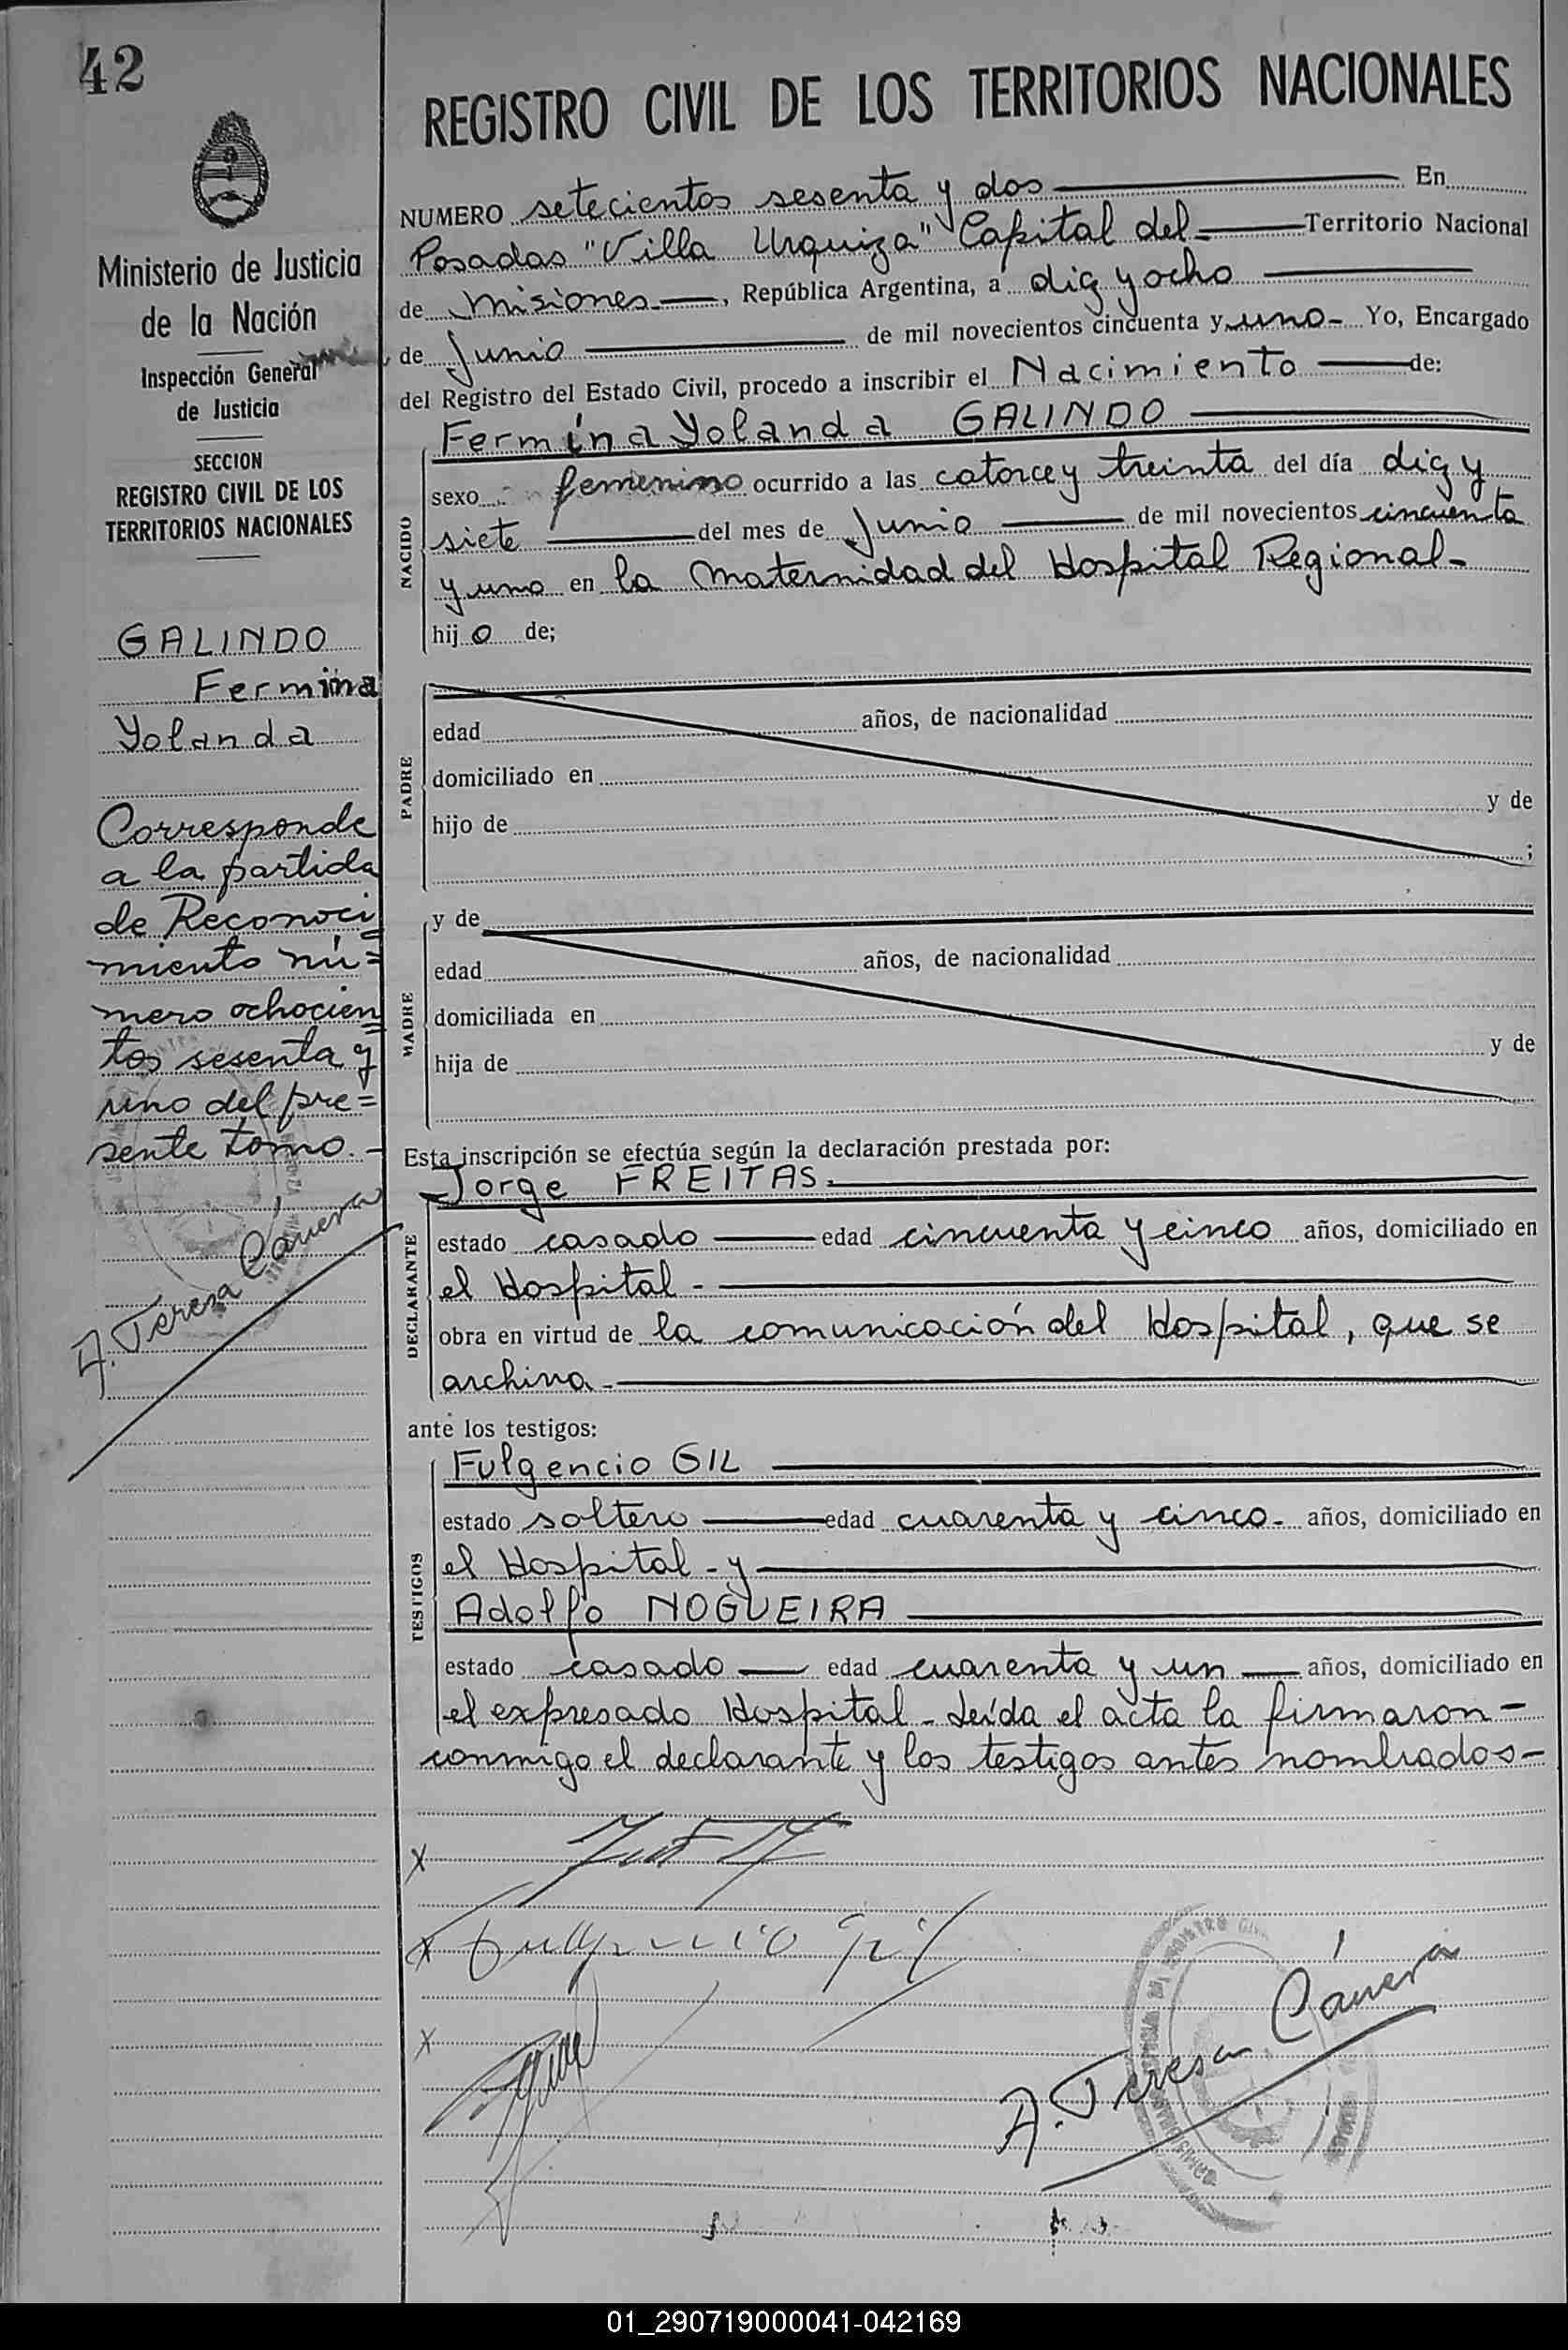 42
REGISTRO CIVIL DE LOS TERRITORIOS NACIONALES
Ministerio de Justicia
de la Nación
Inspección General
de Justicia
SECCION
REGISTRO CIVIL DE LOS
TERRITORIOS NACIONALES
GALINDO
Fermina
Yolanda
Corresponde
a la partida
de Reconoci
miento nú=
mero ochocien
tos sesenta y
uno del pre=
sente tomo.-
A. Teresa Cánera
NUMERO setecientos sesenta y dos En
Posadas "Villa Urquiza" Capital del Territorio Nacional
de Misiones, República Argentina, a diez y ocho
de Junio de mil novecientos cincuenta y uno- Yo, Encargado
del Registro del Estado Civil, procedo a inscribir el Nacimiento de:
NACIDO
Fermina Yolanda GALINDO
sexo femenino ocurrido a las catorce y treinta del día diez y
siete del mes de Junio de mil novecientos cincuenta
y uno en la Maternidad del Hospital Regional-
hijo de;
PADRE
edad años, de nacionalidad
domiciliado en
hijo de y de
;
MADRE
y de
edad años, de nacionalidad
domiciliada en
hija de y de
Esta inscripción se efectúa según la declaración prestada por:
Jorge FREITAS.
DECLARANTE
estado casado edad cincuenta y cinco años, domiciliado en
el Hospital-
obra en virtud de la comunicación del Hospital, que se
archiva-
ante los testigos:
TESTIGOS
Fulgencio GIL
estado soltero edad cuarenta y cinco- años, domiciliado en
el Hospital-y
Adolfo NOGUEIRA
estado casado edad cuarenta y un años, domiciliado en
el expresado Hospital-Leída el acta la firmaron-
conmigo el declarante y los testigos antes nombrados-
x
x Fulgencio Gil
x
A. Teresa Cánera
01_290719000041-042169